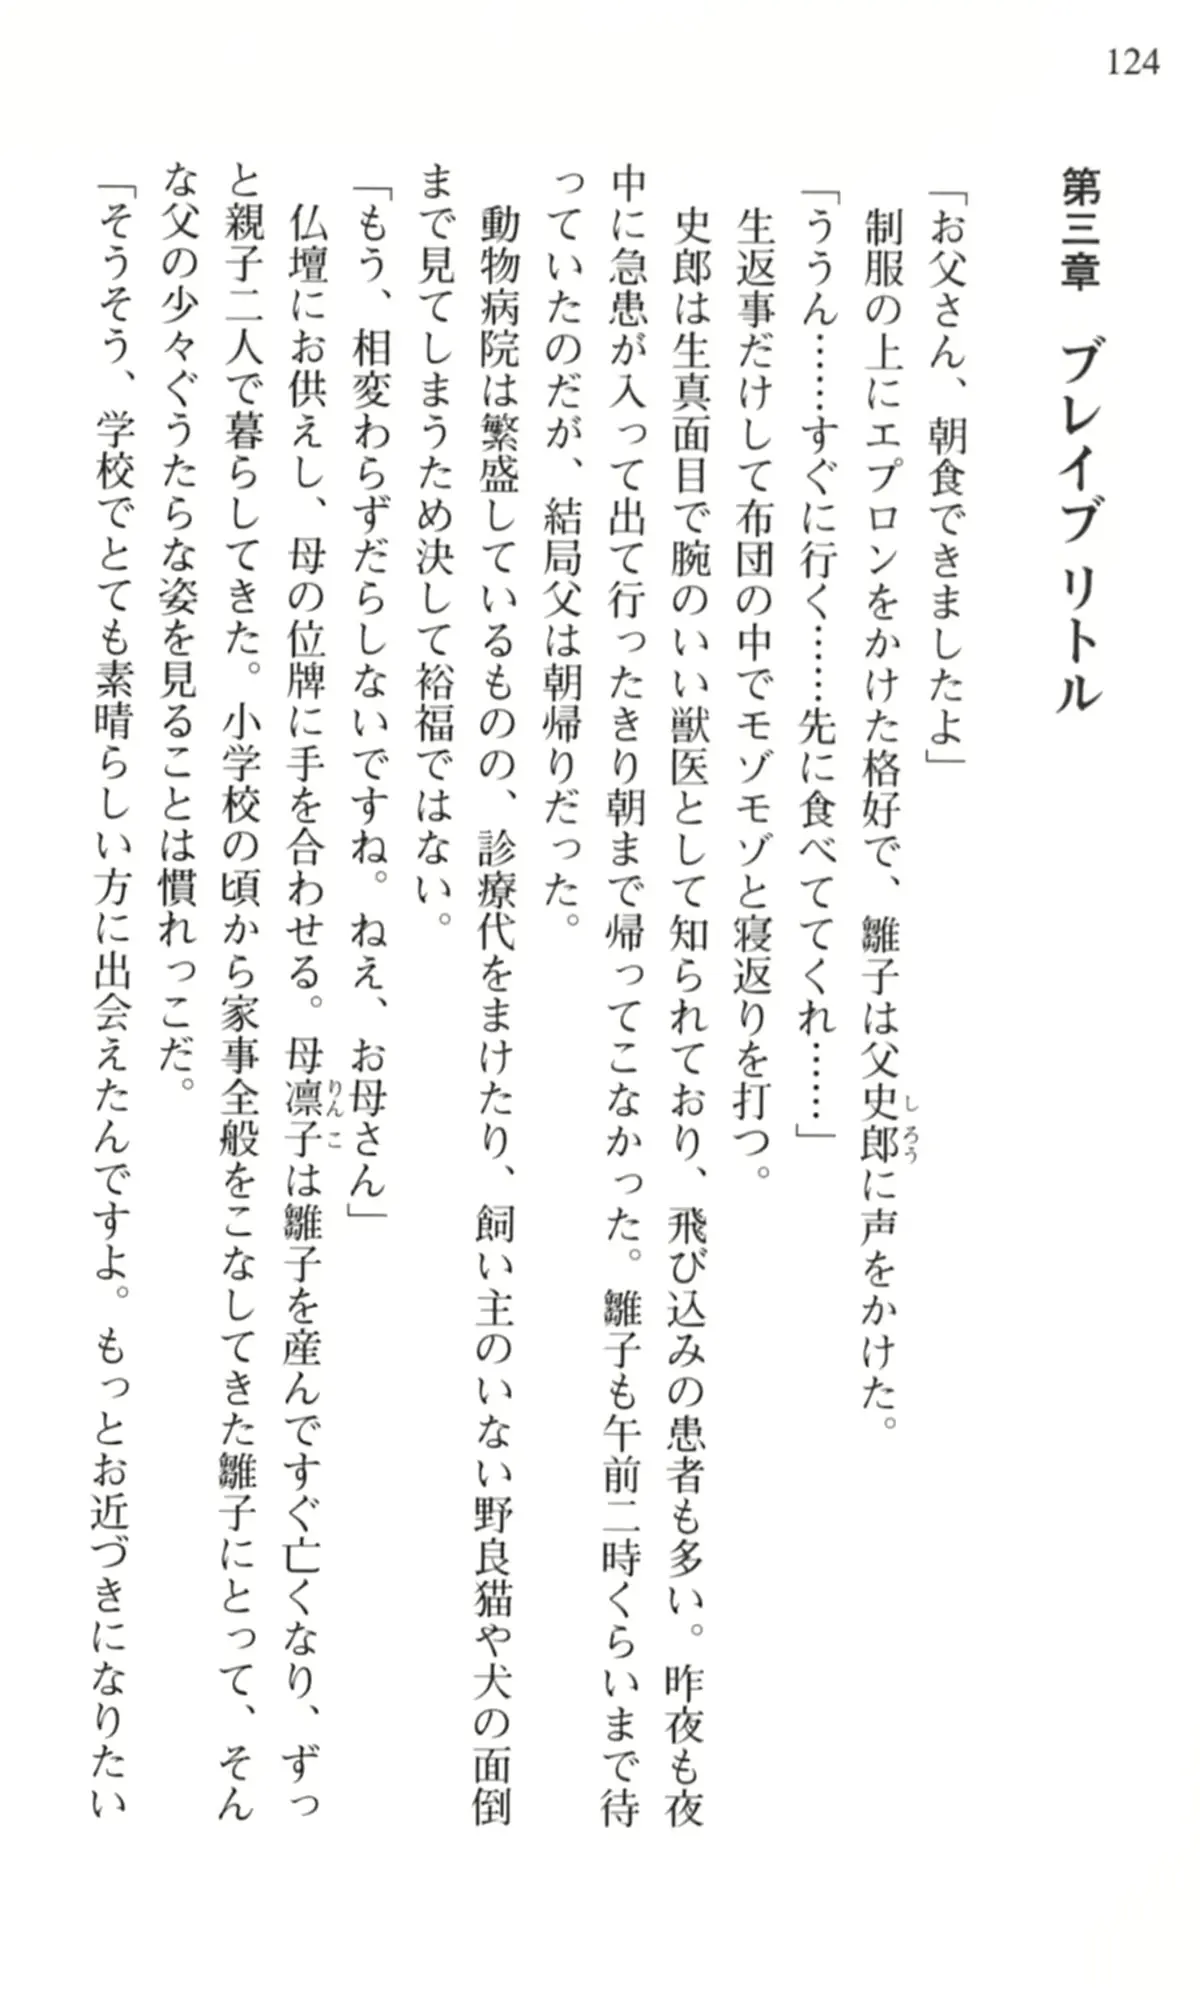 124
第三章　ブレイブ リトル
「お父さん、朝食できましたよ」
　制服の上にエプロンをかけた格好で、雛子は父史郎に声をかけた。
「ううん……すぐに行く……先に食べててくれ……」
　生返事だけして布団の中でモゾモゾと寝返りを打つ。
　史郎は生真面目で腕のいい獣医として知られており、飛び込みの患者も多い。昨夜も夜
中に急患が入って出て行ったきり朝まで帰ってこなかった。雛子も午前二時くらいまで待
っていたのだが、結局父は朝帰りだった。
　動物病院は繁盛しているものの、診療代をまけたり、飼い主のいない野良猫や犬の面倒
まで見てしまうため決して裕福ではない。
「もう、相変わらずだらしないですね。ねえ、お母さん」
　仏壇にお供えし、母の位牌に手を合わせる。母凛子は雛子を産んですぐ亡くなり、ずっ
と親子二人で暮らしてきた。小学校の頃から家事全般をこなしてきた雛子にとって、そん
な父の少々ぐうたらな姿を見ることは慣れっこだ。
「そうそう、学校でとても素晴らしい方に出会えたんですよ。もっとお近づきになりたい